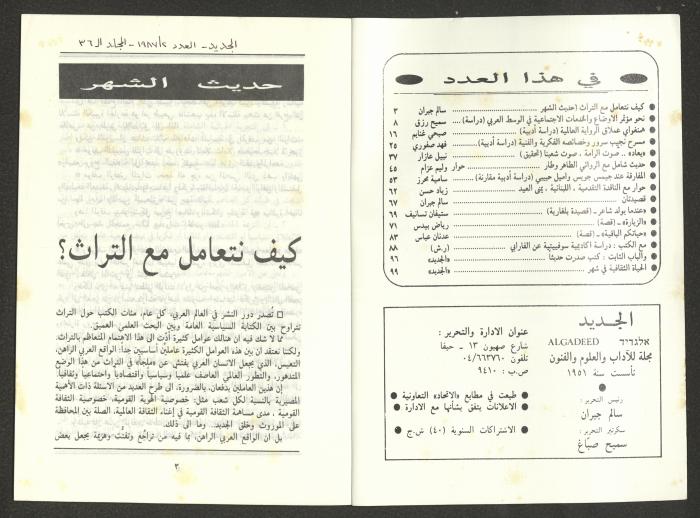 في هذا العدد
كيف نتعامل مع التراث (حديث الشهر ..... سالم جبران ٣
نحو مؤتمر الاوضاع والخدمات الاجتماعية في الوسط العربي (دراسة) .... سميح رزق ٨
همنغواي عملاق الرواية العالمية (دراسة أدبية) ..... صبحي غنايم ١٦
مسرح نجيب سرور وخصائصه الفكرية والفنية (دراسة أدبية) .... فهد صفوري ٢٥
«يعاد» .. صوت الرامة ، صوت شعبنا (تحقيق) ..... نبيل عازار ٣٧
حديث شامل مع الروائي الطاهر وطار ..... حوار وليم عزام ٤٥
المفارقة عند جيمس جويس واميل حبيبي (دراسة أدبية مقارنة) .... سامية محرز ٥٣
حوار مع الناقدة التقدمية ، اللبنانية ، يمنى العيد ..... زياد حسن ٦٢
قصيدتان ..... سالم جبران ٦٧
«عندما يولد شاعر» ـ (قصيدة بلغارية) ..... ستيفان تسانيف ٦٩
«الزيارة» ـ (قصة) ..... رياض بيدس ٧١
«حياتكم الباقية» ـ (قصة) ..... عدنان عباس ٨٣
مع الكتب : دراسة اكاديمية سوفييتية عن الفارابي ..... (ر.ش) ٨٨
والباب الثابت : كتب صدرت حديثاً ..... «الجديد» ٩٦
الحياة الثقافية في شهر ..... «الجديد» ٩٩
الجديد
אלגדיד ALGADEED
مجلة للآداب والعلوم والفنون
تأسست سنة ١٩٥١
رئيس التحرير :
سالم جبران
سكرتير التحرير :
سميح صبّاغ
عنوان الادارة والتحرير :
شارع صهيون ١٣ ـ حيفا
تلفون ٠٤/٦٦٣٧٦٠
ص.ب : ٩٤١٠
طبعت في مطابع «الاتحاد» التعاونية
الاعلانات يتفق بشأنها مع الادارة
الاشتراكات السنوية (٤٠) ش.ج
الجديد ـ العدد ١٩٨٧/٢ ـ المجلد الـ ٣٦
حديث الشهر
كيف نتعامل مع التراث؟
□ تُصدر دور النشر في العالم العربي، كل عام، مئات الكتب حول التراث
تتراوح بين الكتابة السياسية العامة وبين البحث العلمي العميق.
مما لا شك فيه ان هنالك عوامل كثيرة أدّت الى هذا الاهتمام المتعاظم بالتراث.
ولكننا نعتقد ان بين هذه العوامل الكثيرة عاملَين أساسيين جداً: الواقع العربي الراهن،
التعيس، الذي يجعل الانسان العربي يفتش عن «ملجأ» في التراث من هذا الوضع
المتدهور، والتطور العالمي العاصف علمياً وسياسياً واقتصادياً واجتماعياً وثقافياً.
إن هذين العاملين يدفعان، بالضرورة، الى طرح العديد من الاسئلة ذات الأهمية
المصيرية بالنسبة لكل شعب مثل: خصوصية الهوية القومية، خصوصية الثقافة
القومية ، مدى مساهمة الثقافة القومية في إغناء الثقافة العالمية، الصلة بين المحافظة
على الموروث وخلق الجديد.. وما الى ذلك.
بل ان الواقع العربي الراهن، بما فيه من تراجُع وتفتُّت وهزيمة يجعل بعض
٣